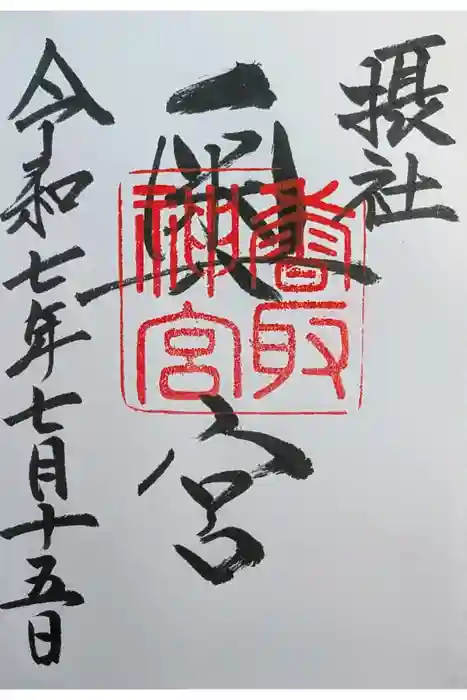 摂社
奥宮
香取神宮
令和七年七月十五日